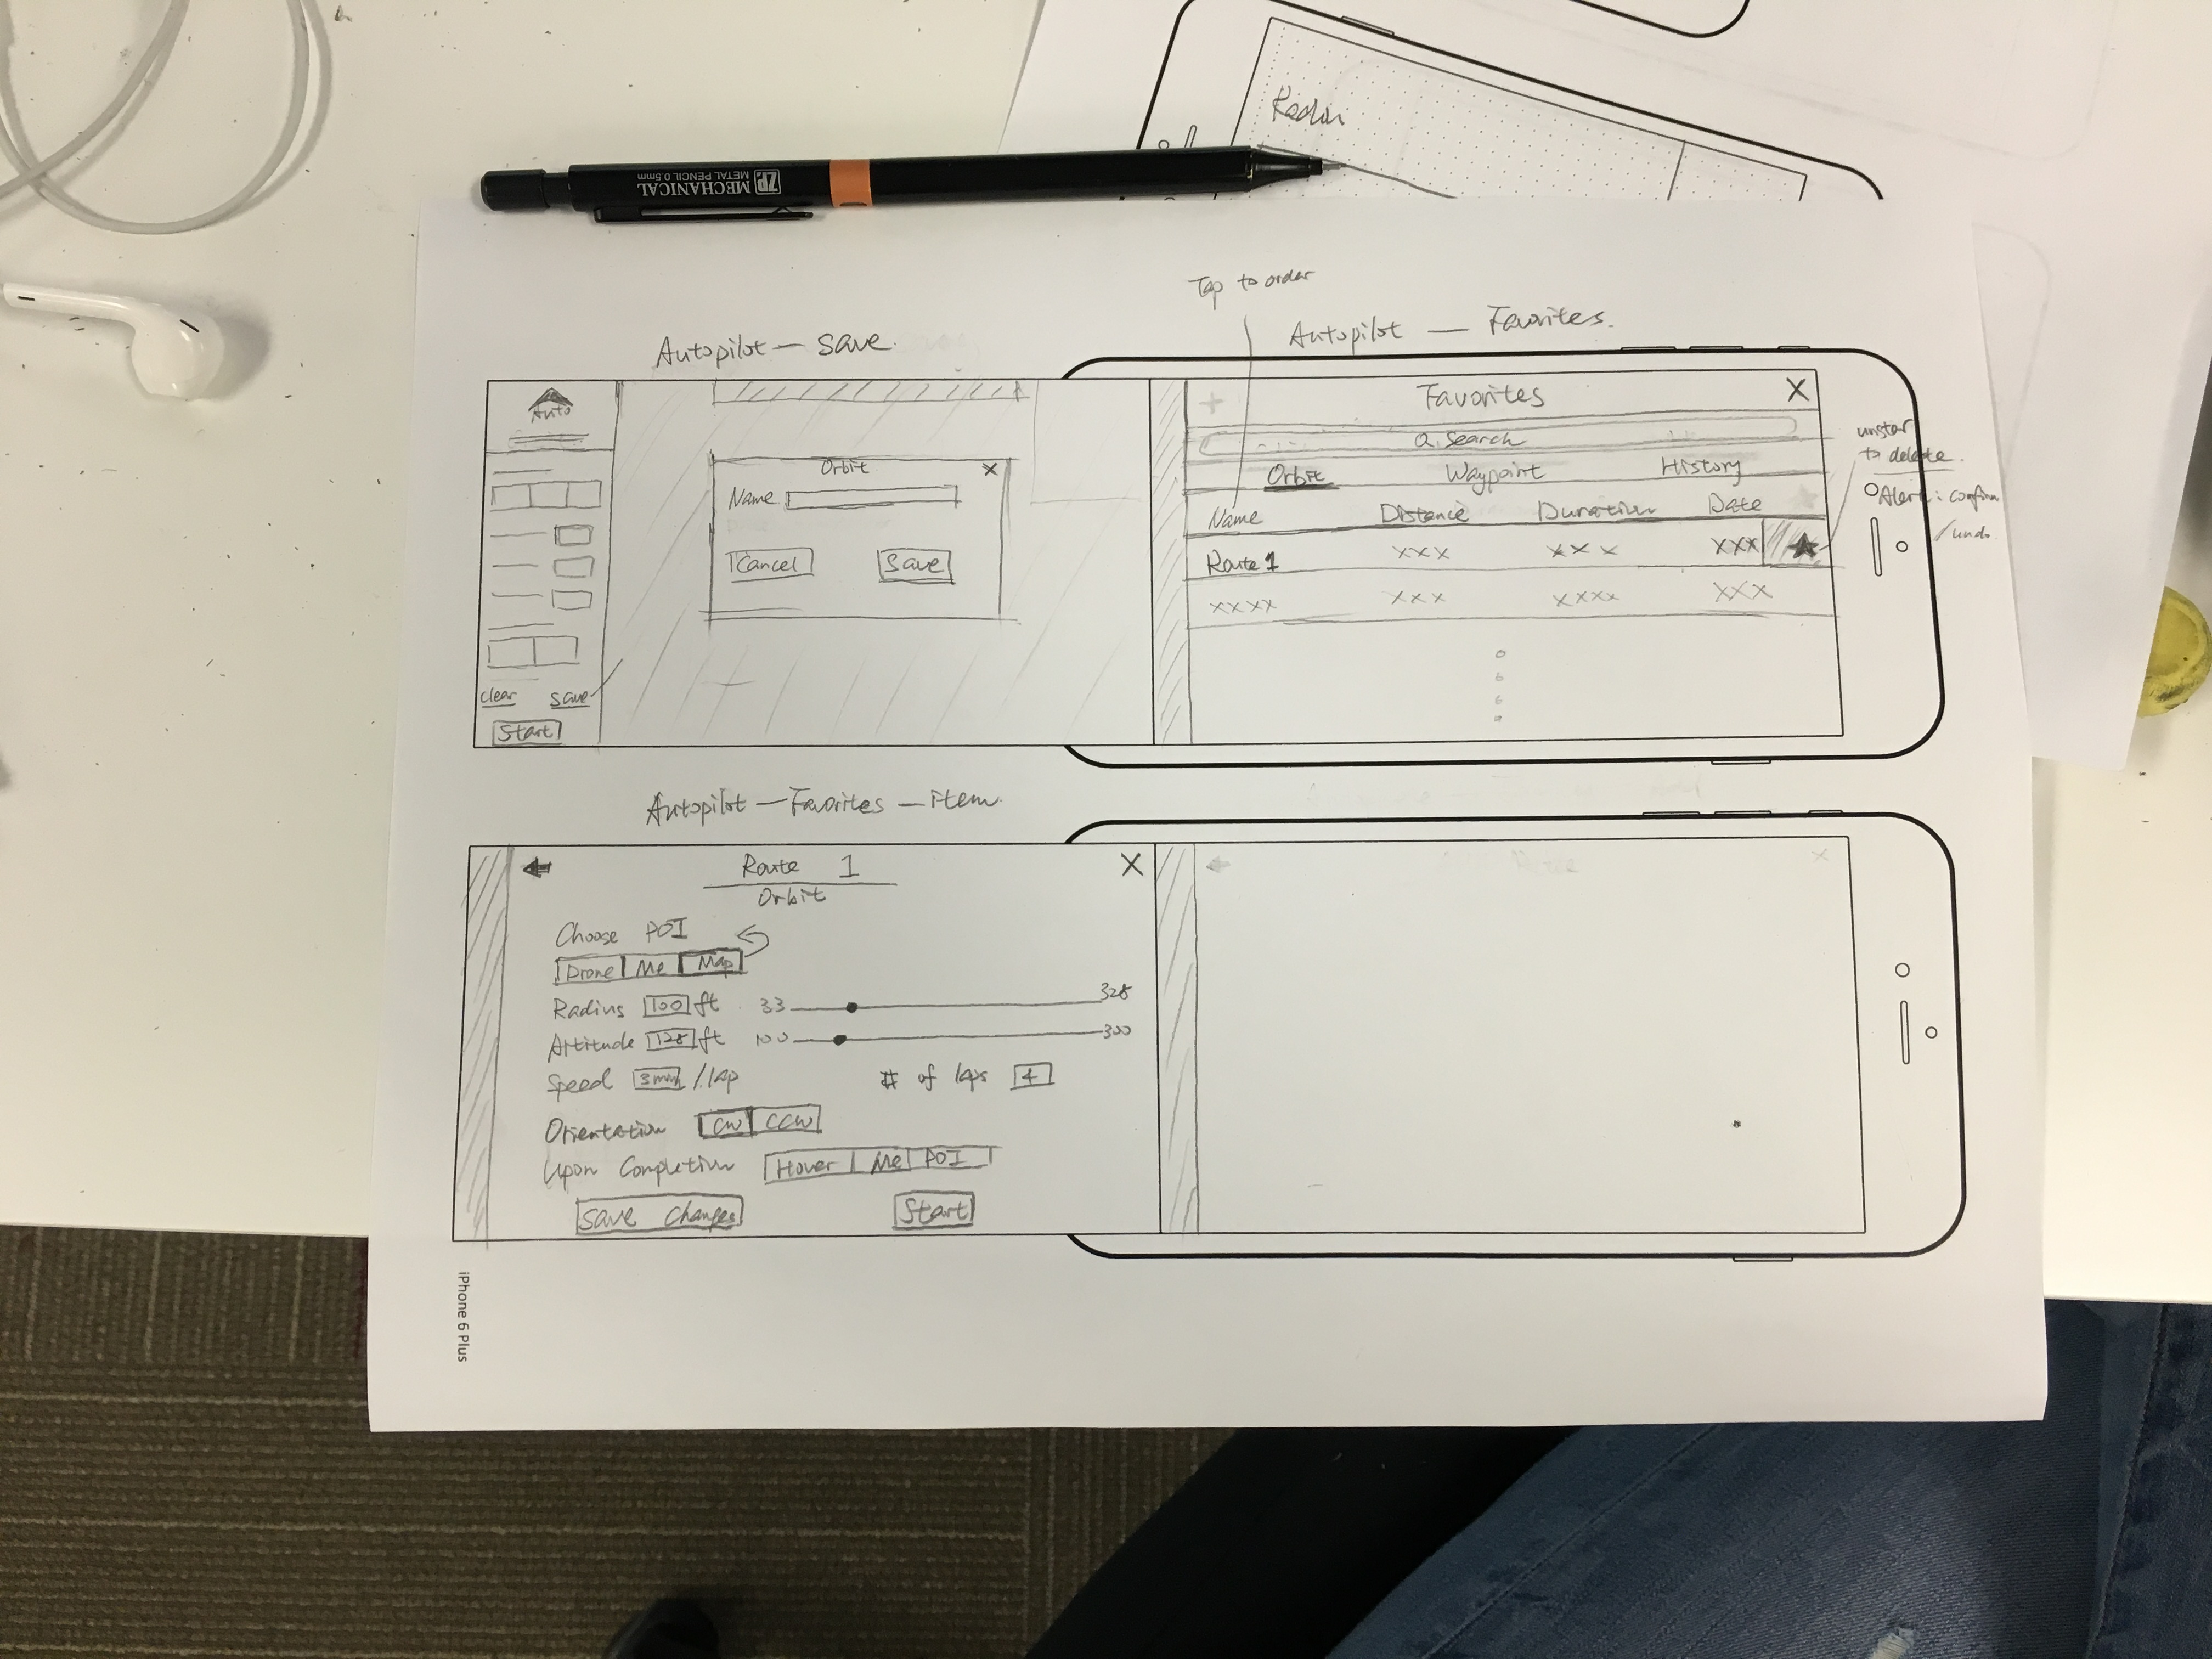 MECHANICAL
METAL PENCIL 0.5mm
ZP
Tap to order
Autopilot — Save.
Autopilot — Favorites.
Auto
Orbit X
Name
Cancel Save
clear save
Start
Favorites X
Search
Orbit Waypoint History
Name Distance Duration Date
Route 1 XXX XXX XXX ★
XXXX XXX XXXX XXX
unstar
to delete.
Alert: confirm
/undo.
Autopilot — Favorites — item.
← Route 1 X
Orbit
Choose POI
Drone Me Map
Radius 100 ft 33 328
Altitude 128 ft 100 300
Speed 3min /lap # of laps 4
Orientation CW CCW
Upon Completion Hover Me POI
Save Changes Start
iPhone 6 Plus